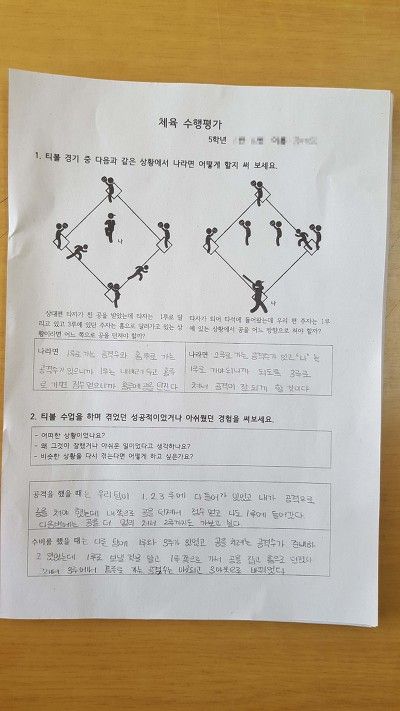 체육 수행평가
5학년
1. 티볼 경기 중 다음과 같은 상황에서 나라면 어떻게 할지 써 보세요.
나
나
상대편 타자가 친 공을 받았는데 타자는 1루로 달
리고 있고 3루에 있던 주자는 홈으로 달려가고 있는 상
황이라면 어느 쪽으로 공을 던져야 할까?
타자가 되어 타석에 들어왔는데 우리 편 주자는 1루
에 있는 상황에서 공을 어느 방향으로 쳐야 할까?
나라면 1루로 가는 공격수와 홈루로 가는
공격수가 있으니까 1루는 내버려 두고 홈루
로 가면 점수 얻으니까 홈루에 공을 던진다
나라면 2루로 가는 공격수가 있고 "나"는
1루로 가야되니까 되도록 3루로
쳐서 공격이 잘 되게 할 것이다
2. 티볼 수업을 하며 겪었던 성공적이었거나 아쉬웠던 경험을 써보세요.
- 어떠한 상황이었나요?
- 왜 그것이 잘했거나 아쉬운 일이었다고 생각하나요?
- 비슷한 상황을 다시 겪는다면 어떻게 하고 싶은가요?
공격을 했을 때는 우리 팀이 1, 2, 3 루에 다 들어가 있었고 내가 공격으로
공을 쳐야 했는데 내 쪽으로 공을 던져서 점수 얻고 나도 1루에 들어갔다
다음번에는 공을 더 멀리 쳐서 2루까지도 가보고 싶다.
수비를 했을 때는 다른 팀에 1루와 3루가 있었고 공을 쳐려는 공격수가
고 있었는데 1루로 보낼 것을 알고 1루 쪽으로 가서 공을 잡고 홈으로 던졌다
그래서 3루에서 홈루로 가는 공격수는 아웃되고 3아웃으로 바뀌었다